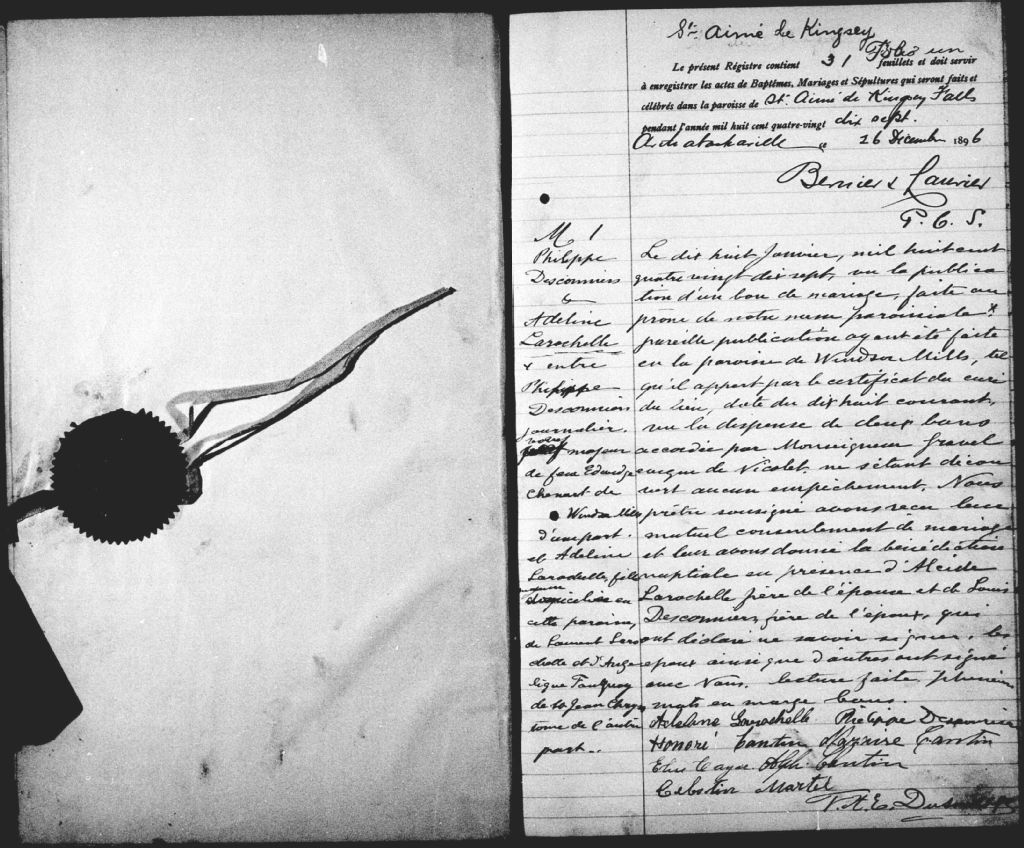 St Aimé de Kingsey
Folio un
Le présent Régistre contient 31 feuillets et doit servir
à enregistrer les actes de Baptêmes, Mariages et Sépultures qui seront faits et
célébrés dans la paroisse de St Aimé de Kingsey Falls
pendant l'année mil huit cent quatre-vingt dix sept.
Arthabaskaville 26 Décembre 1896
Bernier & Laurier
P. C. S.
M 1
Philippe
Descormiers
&
Adeline
Larochelle
& entre
Philippe
Descormiers
journalier,
majeur
de feue Edwidge
Chenart de
Windsor Mills
d'une part.
et Adeline
Larochelle, fille
en
cette paroisse,
de Laurent Laro
chelle et d'Ange
lique
de St Jean Chrys
tome de l'autre
part..
Le dix huit Janvier, mil huit cent
quatre vingt dix sept, vu la publica
tion d'un ban de mariage, faite au
prône de notre messe paroissiale &
pareille publication ayant été faite
en la paroisse de Windsor Mills, tel
qu'il appert par le certificat du curé
du lieu, daté du dix huit courant,
vu la dispense de deux bans
accordée par Monseigneur Gravel
évêque de Nicolet, ne s'étant décou
vert aucun empêchement, Nous
prêtre soussigné avons reçu leur
mutuel consentement de mariage
et leur avons donné la bénédiction
nuptiale en présence d'Alcide
Larochelle frère de l'épouse et de Louis
Descormiers, frère de l'époux, qui
ont déclaré ne savoir signer, les
époux ainsi que d'autres ont signé
avec Nous. Lecture faite, plusieurs
mots en marge bons.
Adeline Larochelle Philippe Descormiers
Honoré Cantin Nazaire Cantin
Cayer Cantin
Célestin Martel